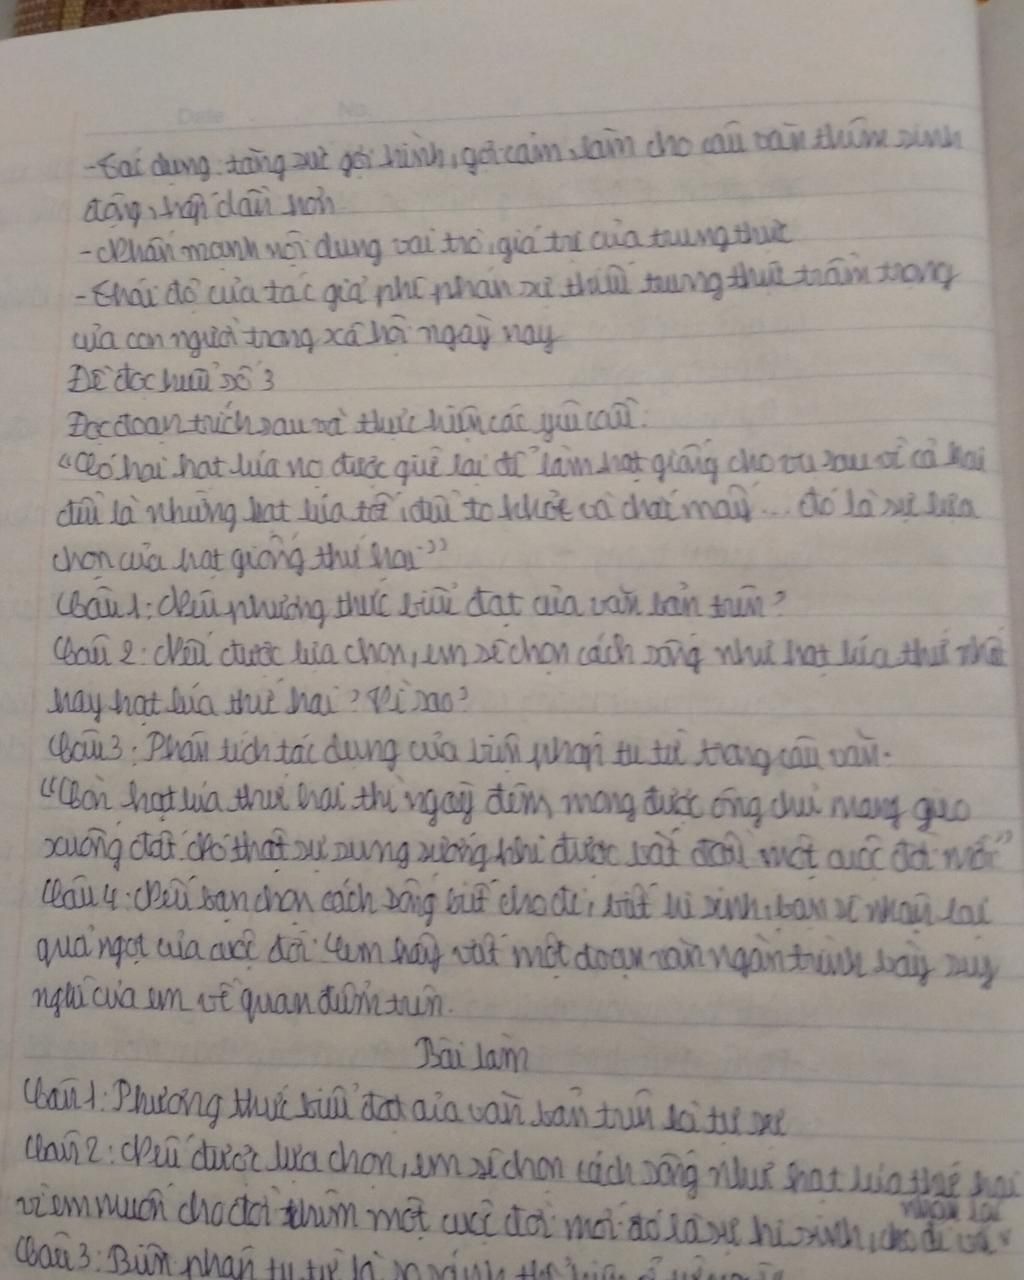 Date No.
-Tác dụng: tăng sức gợi hình, gợi cảm, làm cho câu văn thêm sinh
động, hấp dẫn hơn
-Nhấn mạnh nội dung vai trò, giá trị của trung thực
-Thái độ của tác giả phê phán sự thiếu trung thực trầm trọng
của con người trong xã hội ngày nay
Đề đọc hiểu số 3
Đọc đoạn trích sau và thực hiện các yêu cầu:
"Có hai hạt lúa nọ được giữ lại để làm hạt giống cho vụ sau vì cả hai
đều là những hạt lúa tốt, đều to khỏe và chắc mẩy... đó là sự lựa
chọn của hạt giống thứ hai"
Câu 1: Nêu phương thức biểu đạt của văn bản trên?
Câu 2: Nếu được lựa chọn, em sẽ chọn cách sống như hạt lúa thứ nhất
hay hạt lúa thứ hai? Vì sao?
Câu 3: Phân tích tác dụng của biện pháp tu từ trong câu văn.
"Còn hạt lúa thứ hai thì ngày đêm mong được ông chủ mang gieo
xuống đất. Nó thật sự sung sướng khi được bắt đầu một cuộc đời mới"
Câu 4: Nếu bạn chọn cách sống biết cho đi, biết hi sinh, bạn sẽ nhận lại
quả ngọt của cuộc đời. Em hãy viết một đoạn văn ngắn trình bày suy
nghĩ của em về quan điểm trên.
Bài làm
Câu 1: Phương thức biểu đạt của văn bản trên là tự sự
Câu 2: Nếu được lựa chọn, em sẽ chọn cách sống như hạt lúa thứ hai
vì em muốn cho đời thêm một cuộc đời mới đó là sự hi sinh, cho đi và nhận lại
Câu 3: Biện pháp tu từ là